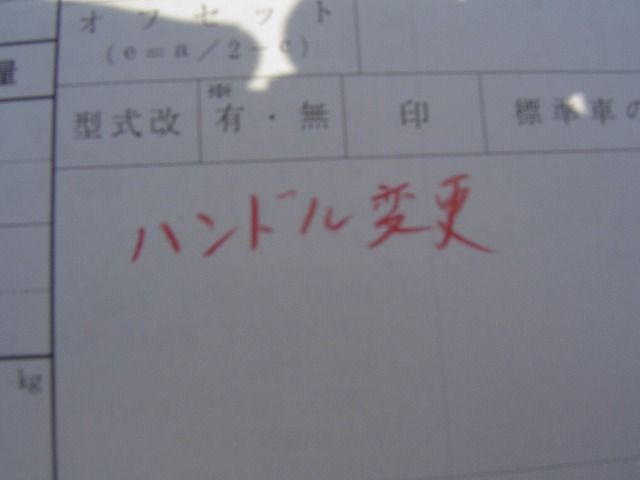 オフセット
(e=a/2-c)
量
型式改 ※有・無 印 標準車の
ハンドル変更
kg